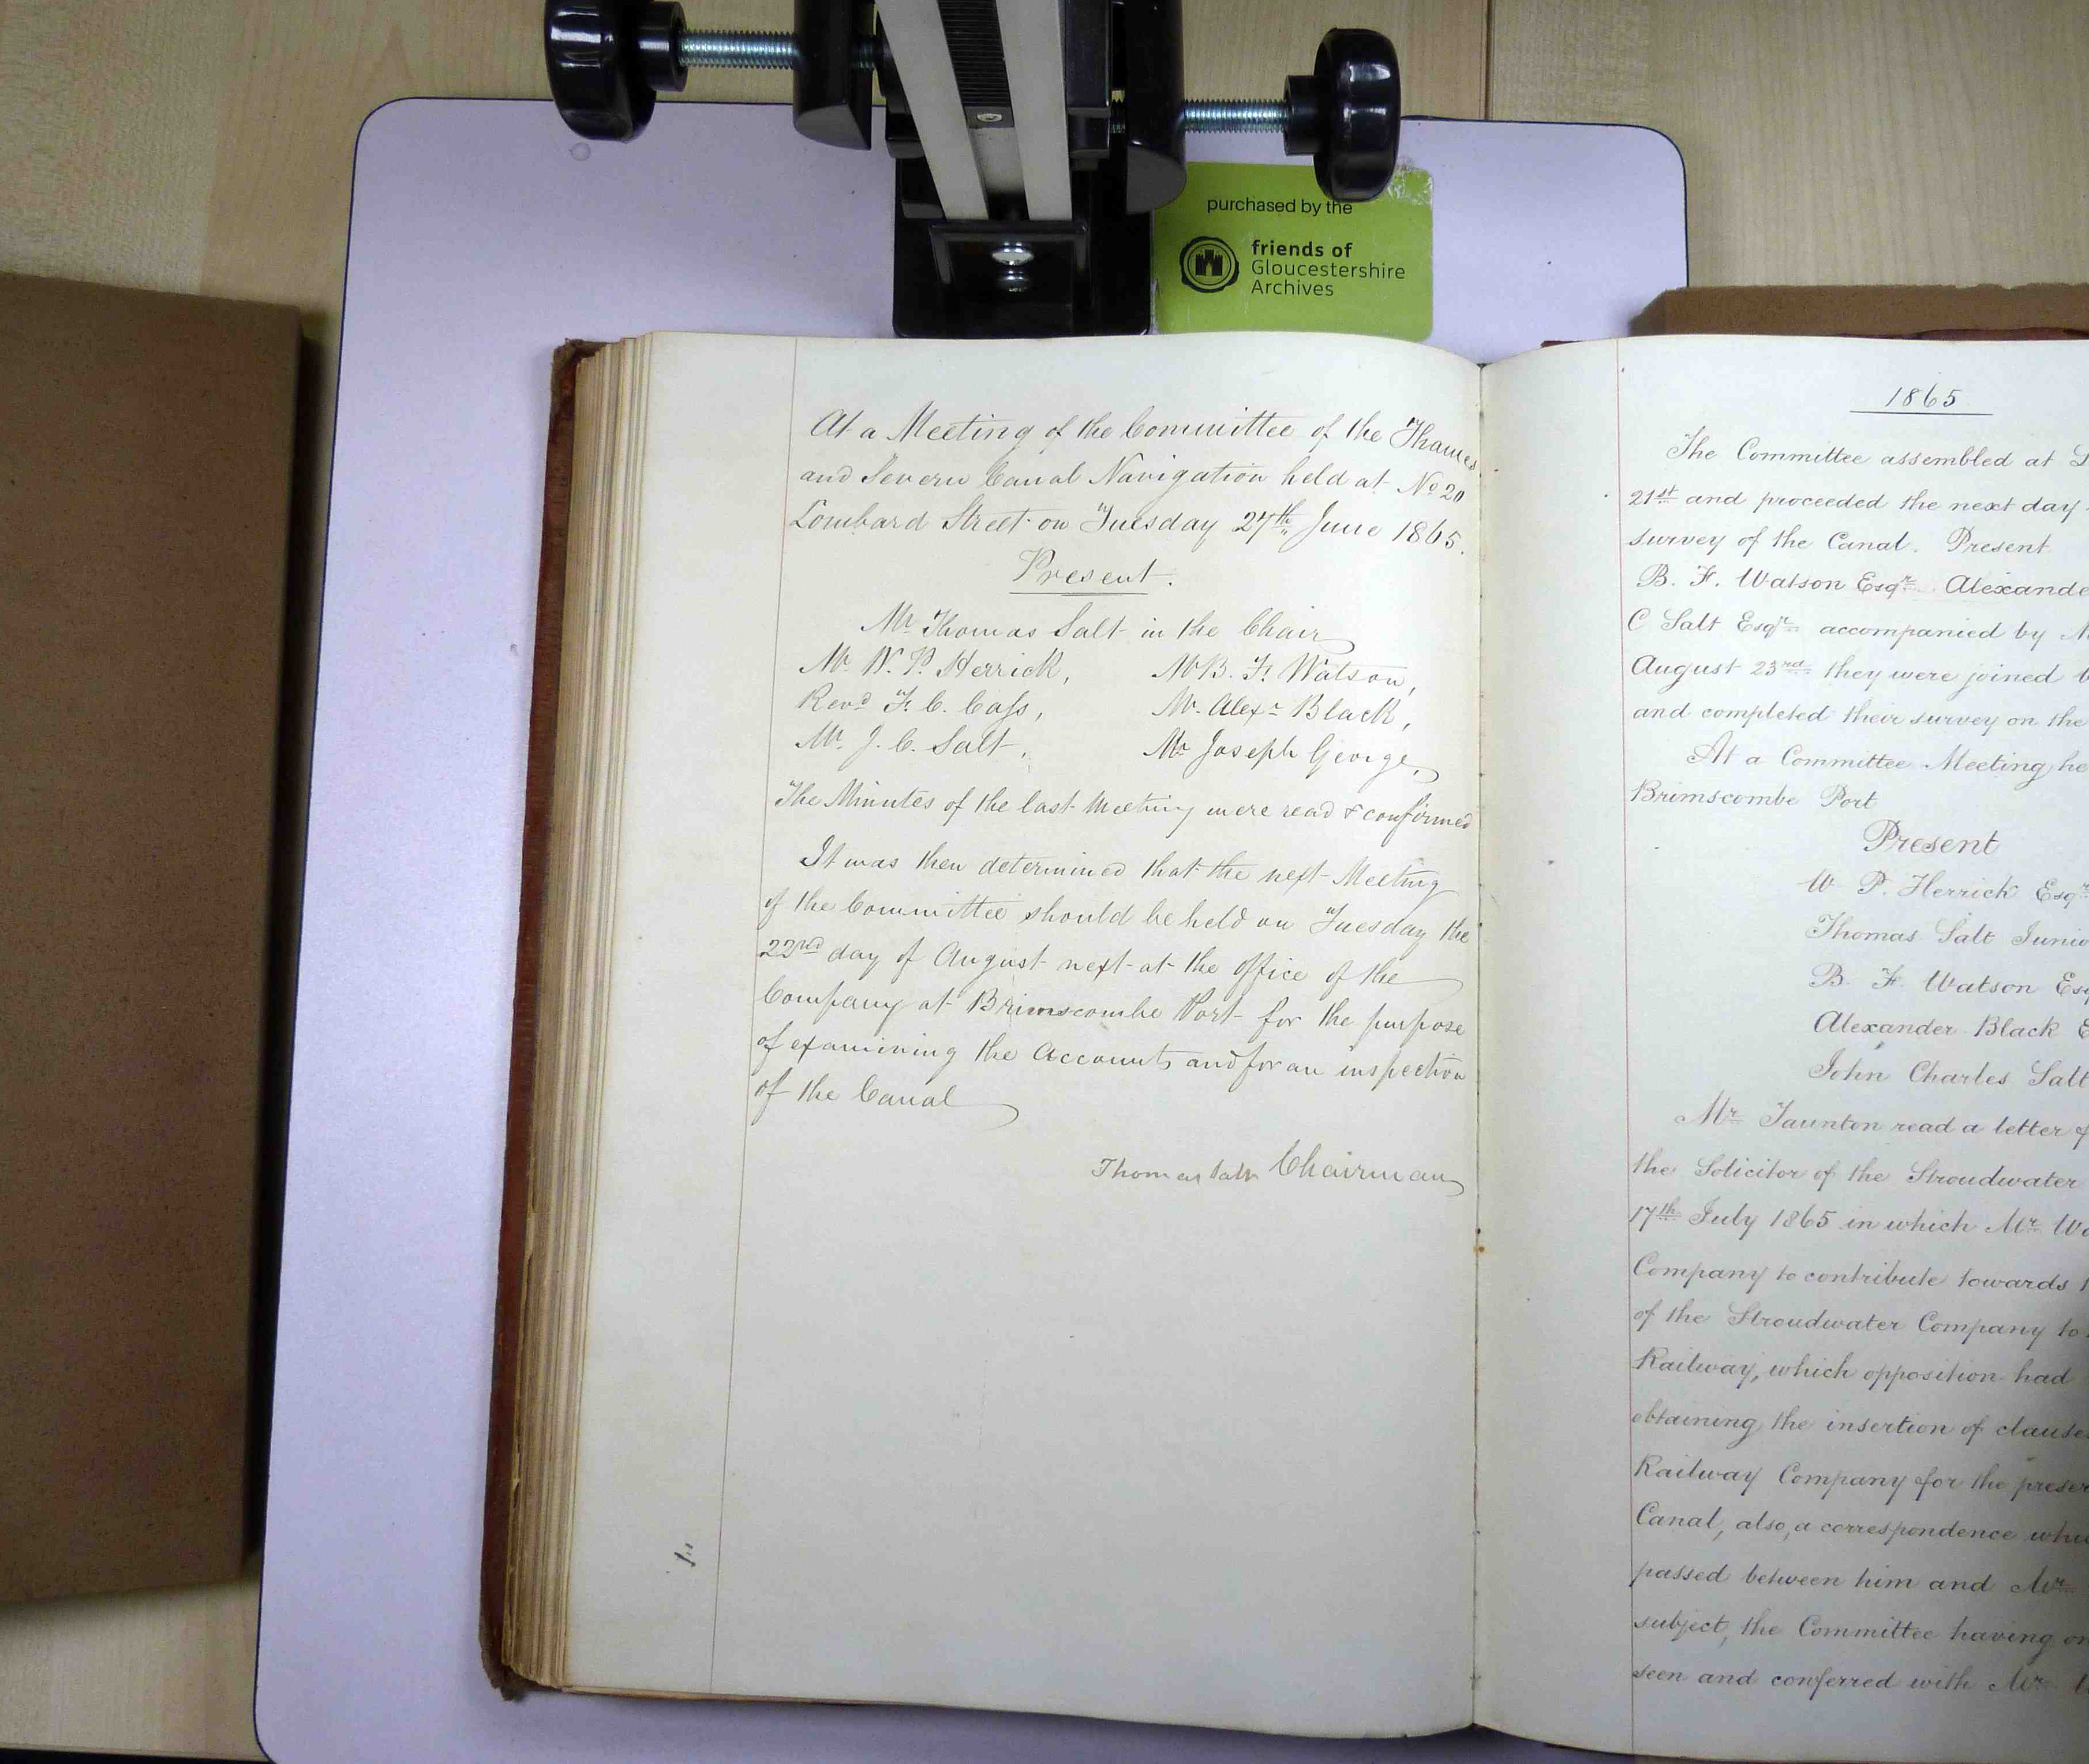 purchased by the
friends of
Gloucestershire
Archives
At a Meeting of the Committee of the Thames
and Severn Canal Navigation held at No 20
Lombard Street on Tuesday 27th June 1865.
Present.
Mr Thomas Salt in the Chair
Mr. W. P. Herrick, Mr B. F. Watson,
Revd F. C. Cass, Mr. Alexr Black,
Mr. J. C. Salt, Mr Joseph George,
The Minutes of the last Meeting were read & confirmed
It was then determined that the next Meeting
of the Committee should be held on Tuesday the
22nd day of August next at the office of the
Company at Brimscombe Port for the purpose
of examining the Accounts and for an inspection
of the Canal
Thomas Salt Chairman
1865
The Committee assembled at
21st and proceeded the next day
survey of the Canal. Present
B. F. Watson Esqr Alexande
C Salt Esqr accompanied by
August 23rd they were joined
and completed their survey on the
At a Committee Meeting he
Brimscombe Port
Present
W. P. Herrick Esqr
Thomas Salt Junio
B. F. Watson Esq
Alexander Black E
John Charles Salt
Mr Taunton read a letter f
the Solicitor of the Stroudwater
17th July 1865 in which Mr
Company to contribute towards
of the Stroudwater Company to
Railway, which opposition had
obtaining the insertion of clause
Railway Company for the preser
Canal, also, a correspondence whi
passed between him and Mr
subject, the Committee having on
seen and conferred with Mr